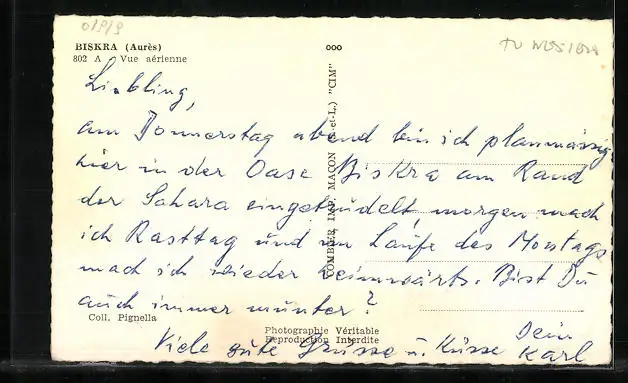 BISKRA (Aurès)
802 A Vue aérienne
Liebling,
am Donnerstag abend bin ich planmässig
hier in der Oase Biskra am Rand
der Sahara eingetrudelt, morgen mach
ich Rasttag und im Laufe des Montags
mach ich wieder heimwärts. Bist Du
auch immer munter?
Viele gute Grüsse u. Küsse Dein
Karl
Coll. Pignella
Photographie Véritable
Reproduction Interdite
COMBIER IMP. MACON (S.-et-L.) "CIM"